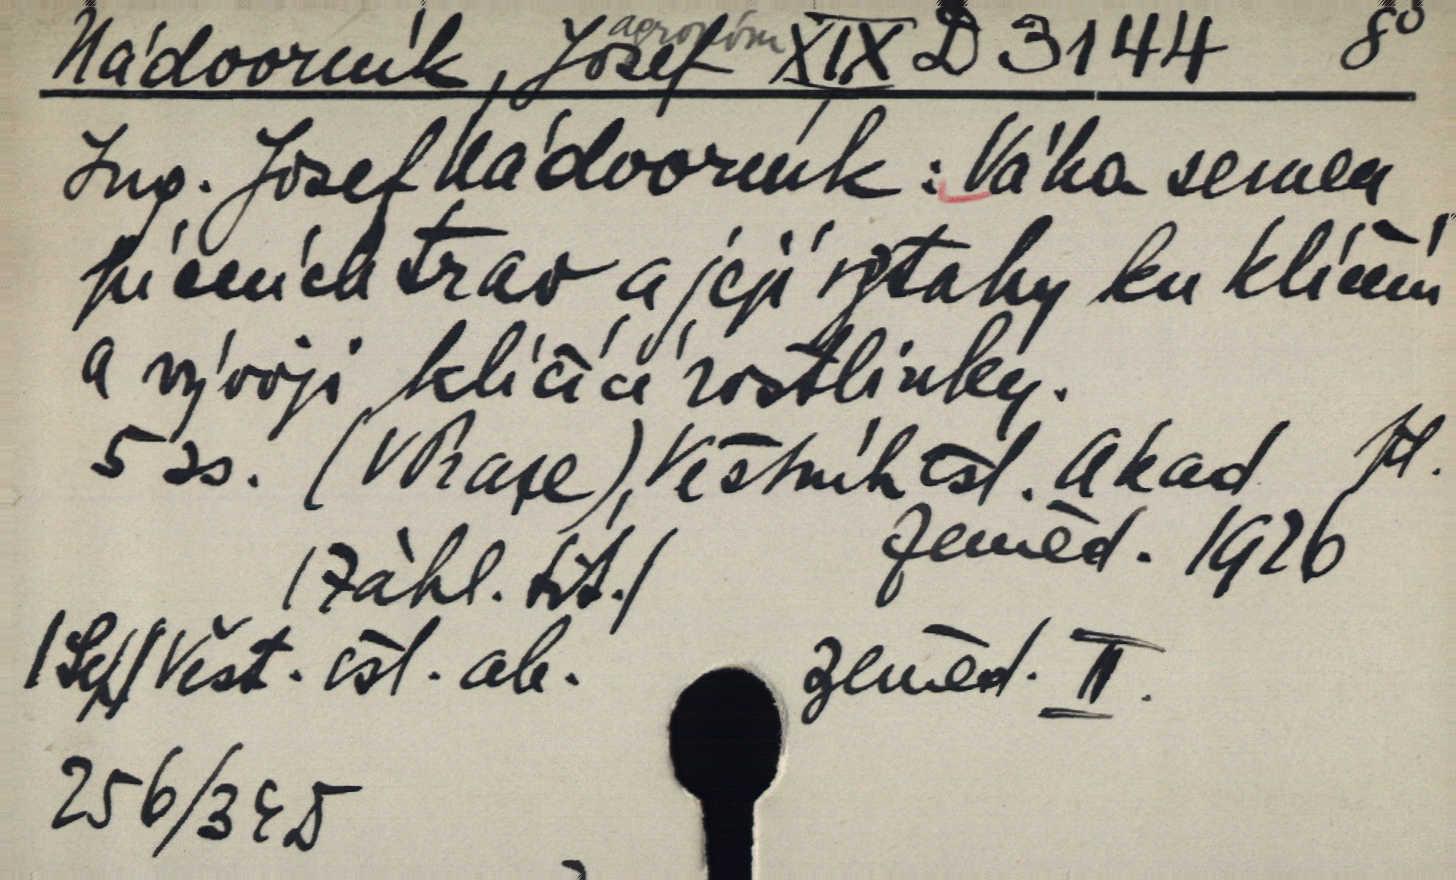 Nádvorník, Josef agronóm XIX D 3144 8°
Ing. Josef Nádvorník: Váha semen
pícních trav a její vztahy ku klíčení
a vývoji klíčící rostlinky.
5 ss. (V Praze), Věstník čsl. Akad
zeměd. 1926
(Záhl. tit.)
/Sep/ Věst. čsl. ak. zeměd. II.
256/34D